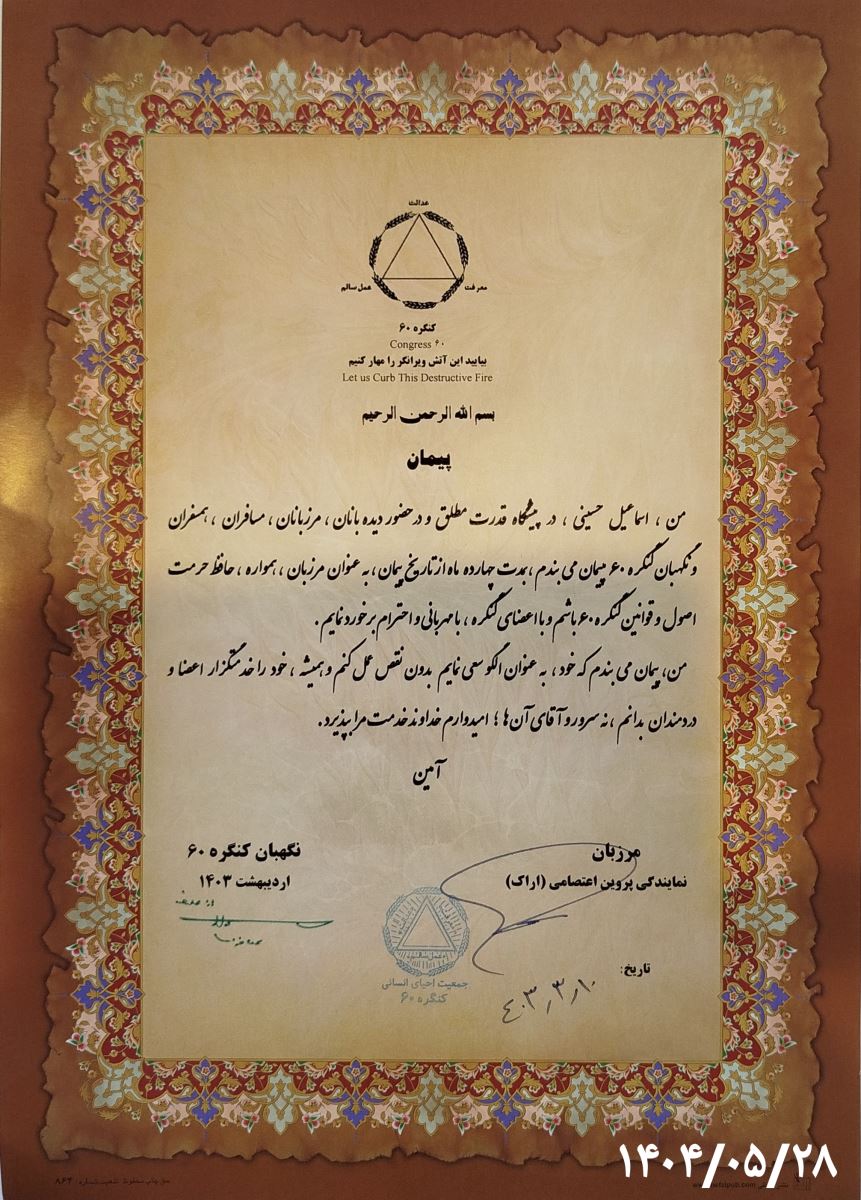 عدالت
عمل سالم
معرفت
کنگره ۶۰
Congress ۶۰
بیایید این آتش ویرانگر را مهار کنیم
Let us Curb This Destructive Fire
بسم الله الرحمن الرحیم
پیمان
من ، اسماعیل حسینی ، در پیشگاه قدرت مطلق و در حضور دیده بانان ، مرزبانان ، مسافران ، همسفران
و نگهبان کنگره ۶۰ پیمان می بندم ، بمدت چهارده ماه از تاریخ پیمان ، به عنوان مرزبان ، همواره ، حافظ حرمت
اصول و قوانین کنگره ۶۰ باشم و با اعضای کنگره ، با مهربانی و احترام برخورد نمایم .
من ، پیمان می بندم که خود ، به عنوان الگو سعی نمایم بدون نقص عمل کنم و همیشه ، خود را خدمتگزار اعضا و
دردمندان بدانم ، نه سرور و آقای آن ها ؛ امیدوارم خداوند خدمت مرا بپذیرد .
آمین
مرزبان
نمایندگی پروین اعتصامی (اراک)
نگهبان کنگره ۶۰
اردیبهشت ۱۴۰۳
جمعیت احیای انسانی
کنگره ۶۰
تاریخ:
۴۰۳٫۳٫۱۰
۱۴۰۴/۰۵/۲۸